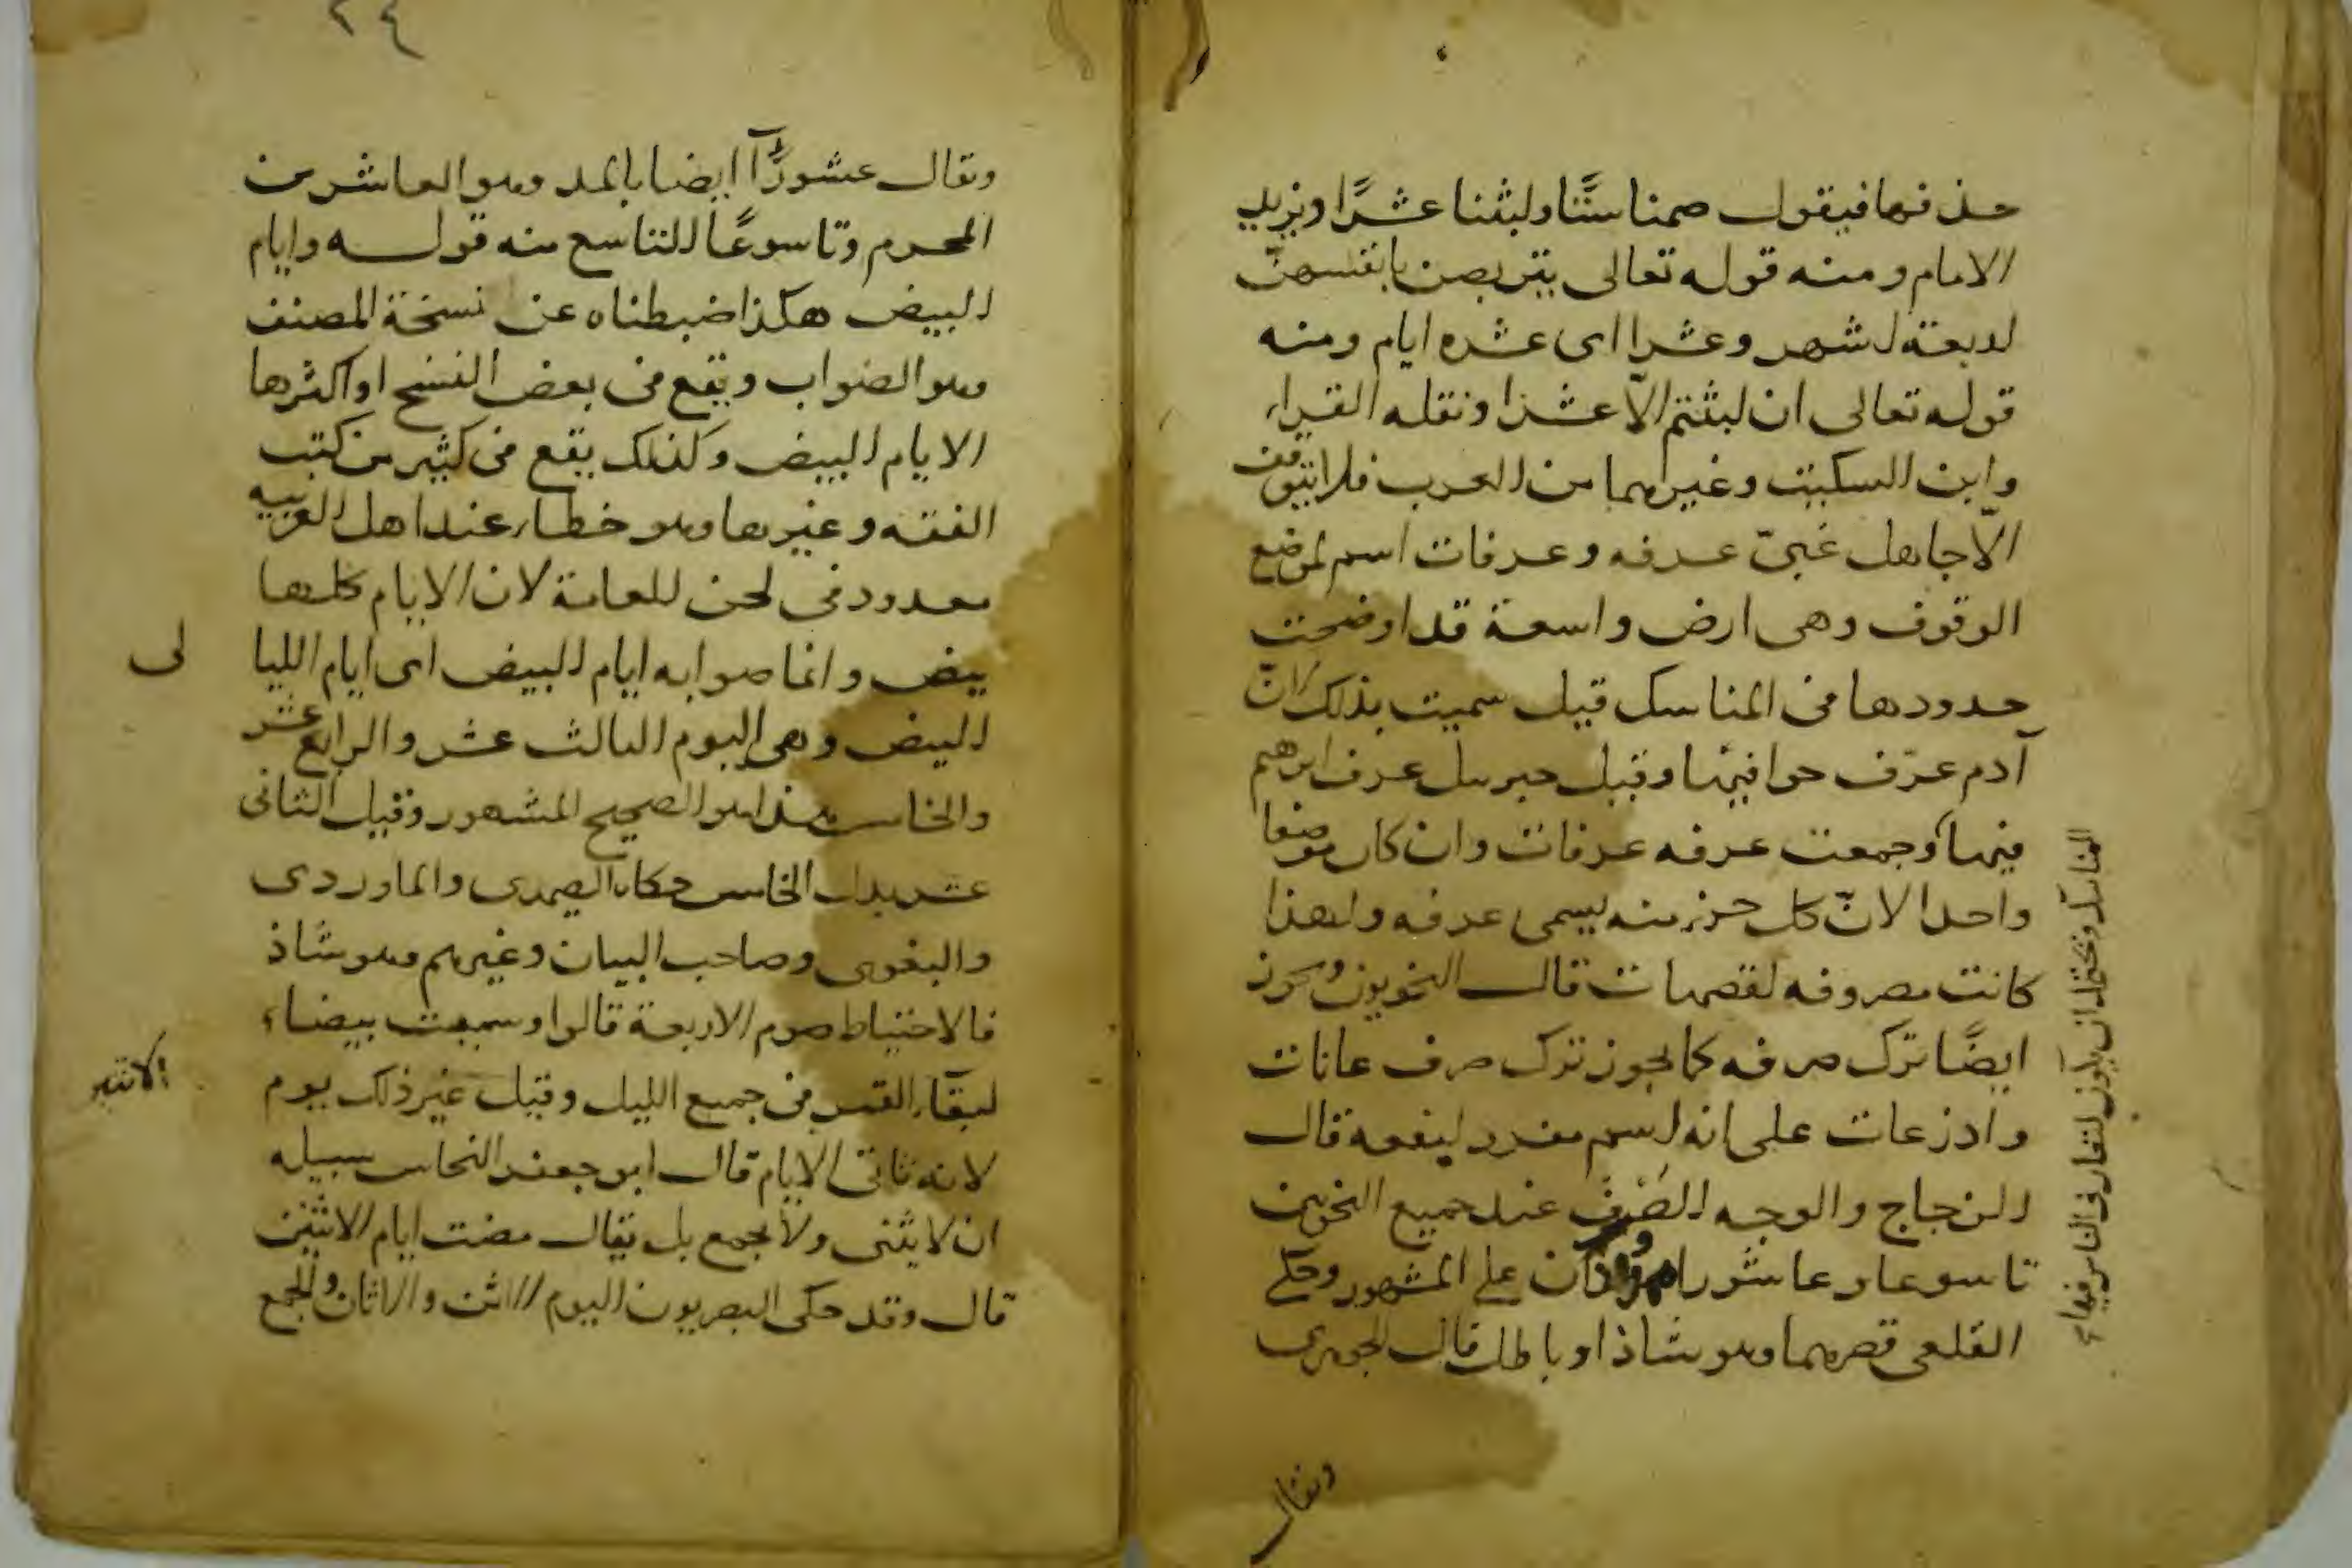 حذفها فيقول صمنا ستًّا ولبثنا عشرًا ويريد
الايام ومنه قوله تعالى يتربصن بانفسهنّ
اربعة اشهر وعشرا اى عشره ايام ومنه
قوله تعالى ان لبثتم الّا عشرا ونقله الفراء
وابن السكيت وغيرهما من العرب فلا يتوقف
الّا جاهل غبىّ عرفه وعرفات اسم لموضع
الوقوف وهى ارض واسعة قد اوضحت
حدودها فى المناسك قيل سميت بذلك لانّ
آدم عرّف حوا فيها وقيل جبريل عرف ابرهيم
فيها وجمعت عرفه عرفات وان كان موضعا
واحدا لانّ كل جزء منه يسمى عرفه ولهذا
كانت مصروفه لقصبات قال النحويون ويجوز
ايضًا ترك صرفه كما يجوز ترك صرف عانات
واذرعات على انه اسم مفرد لبقعه قال
الزجاج والوجه الصَرْف عند جميع النحويين
تاسوعا وعاشورا ممدودان على المشهور وحكى
القلعى قصرهما وهو شاذ او باطل قال الجوهرى
المناسك ويحتمل ان يكون لتعارف الناس فيها
ويقال
٢٤
ويقال عشورًآ ايضا بالمد وهو العاشر من
المحرم وتاسوعًا للتاسع منه قوله وايام
البيض هكذا ضبطناه عن نسخة المصنف
وهو الصواب ويقع فى بعض النسخ او اكثرها
الايام البيض وكذلك يقع فى كثير من كتب
الفقه وغيرها وهو خطاء عند اهل العربيه
معدود فى لحن للعامة لان الايام كلها
بيض وانما صوابه ايام البيض اى ايام الليا
لى
البيض وهى اليوم الثالث عشر والرابع عشر
والخامس هذا هو الصحيح المشهور وقيل الثانى
عشر بدل الخامس حكاه الصيمرى والماوردى
والبغوى وصاحب البيان وغيرهم وهو شاذ
فالاحتياط صوم الاربعة قالوا وسميت بيضاء
لبقآء القمر فى جميع الليل وقيل غير ذلك يوم
الاثنين
لانه ثانى الايام قال ابو جعفر النحاس سبيله
ان لا يثنى ولا يجمع بل يقال مضت ايام الاثنين
قال وقد حكى البصريون اليوم الاثن والاثان والجمع